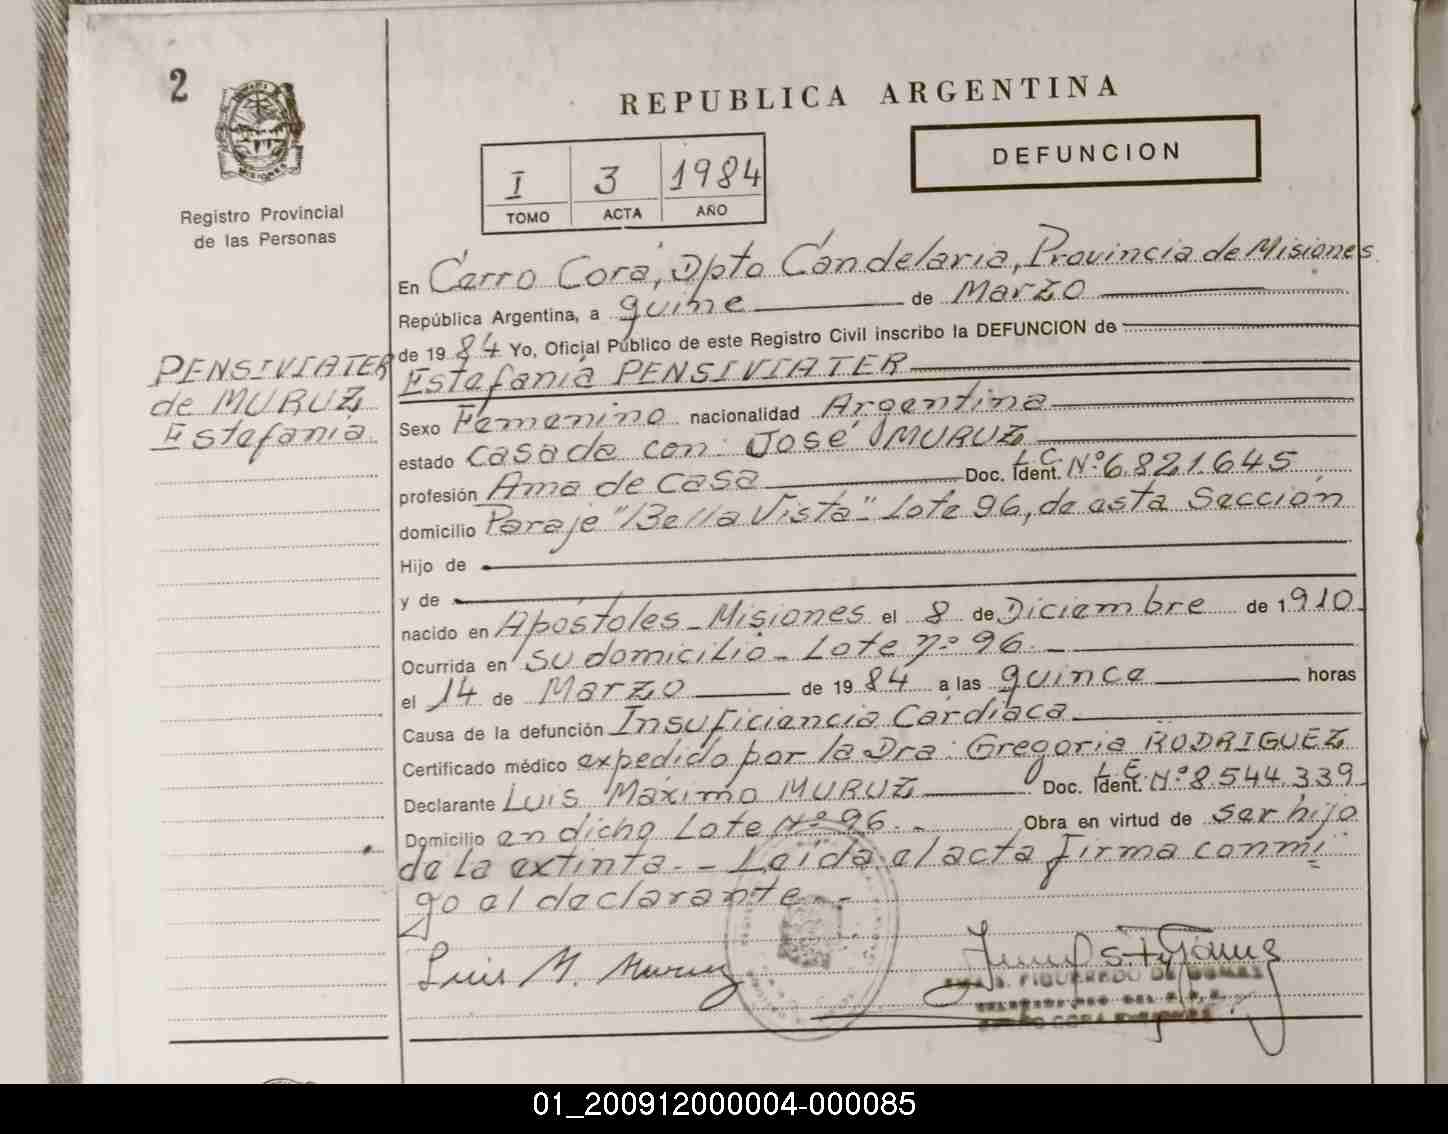 2
REPUBLICA ARGENTINA
I 3 1984
TOMO ACTA AÑO
DEFUNCION
Registro Provincial
de las Personas
En Cerro Corá, Dpto Candelaria, Provincia de Misiones
República Argentina, a quine de Marzo
de 1984 Yo, Oficial Público de este Registro Civil inscribo la DEFUNCION de
Estefanía PENSIVIATER
PENSIVIATER
de MURUZ
Estefanía
Sexo Femenino nacionalidad Argentina
estado casada con: José MURUZ
profesión Ama de casa Doc. Ident. L.C. Nº 6.821.645
domicilio Paraje "Bella Vista" - Lote 96, de esta Sección
Hijo de
y de
nacido en Apóstoles - Misiones el 8 de Diciembre de 1910
Ocurrida en su domicilio - Lote nº 96. -
el 14 de Marzo de 1984 a las quince horas
Causa de la defunción Insuficiencia Cardíaca
Certificado médico expedido por la Dra: Gregoria RODRIGUEZ
Declarante Luis Máximo MURUZ Doc. Ident. L.E. Nº 8.544.339
Domicilio en dicho Lote Nº 96. - Obra en virtud de ser hijo
de la extinta. - - Leída el acta firma conmi
go el declarante. -
Luis M. Muruz
FIGUEREDO DE
01_200912000004-000085